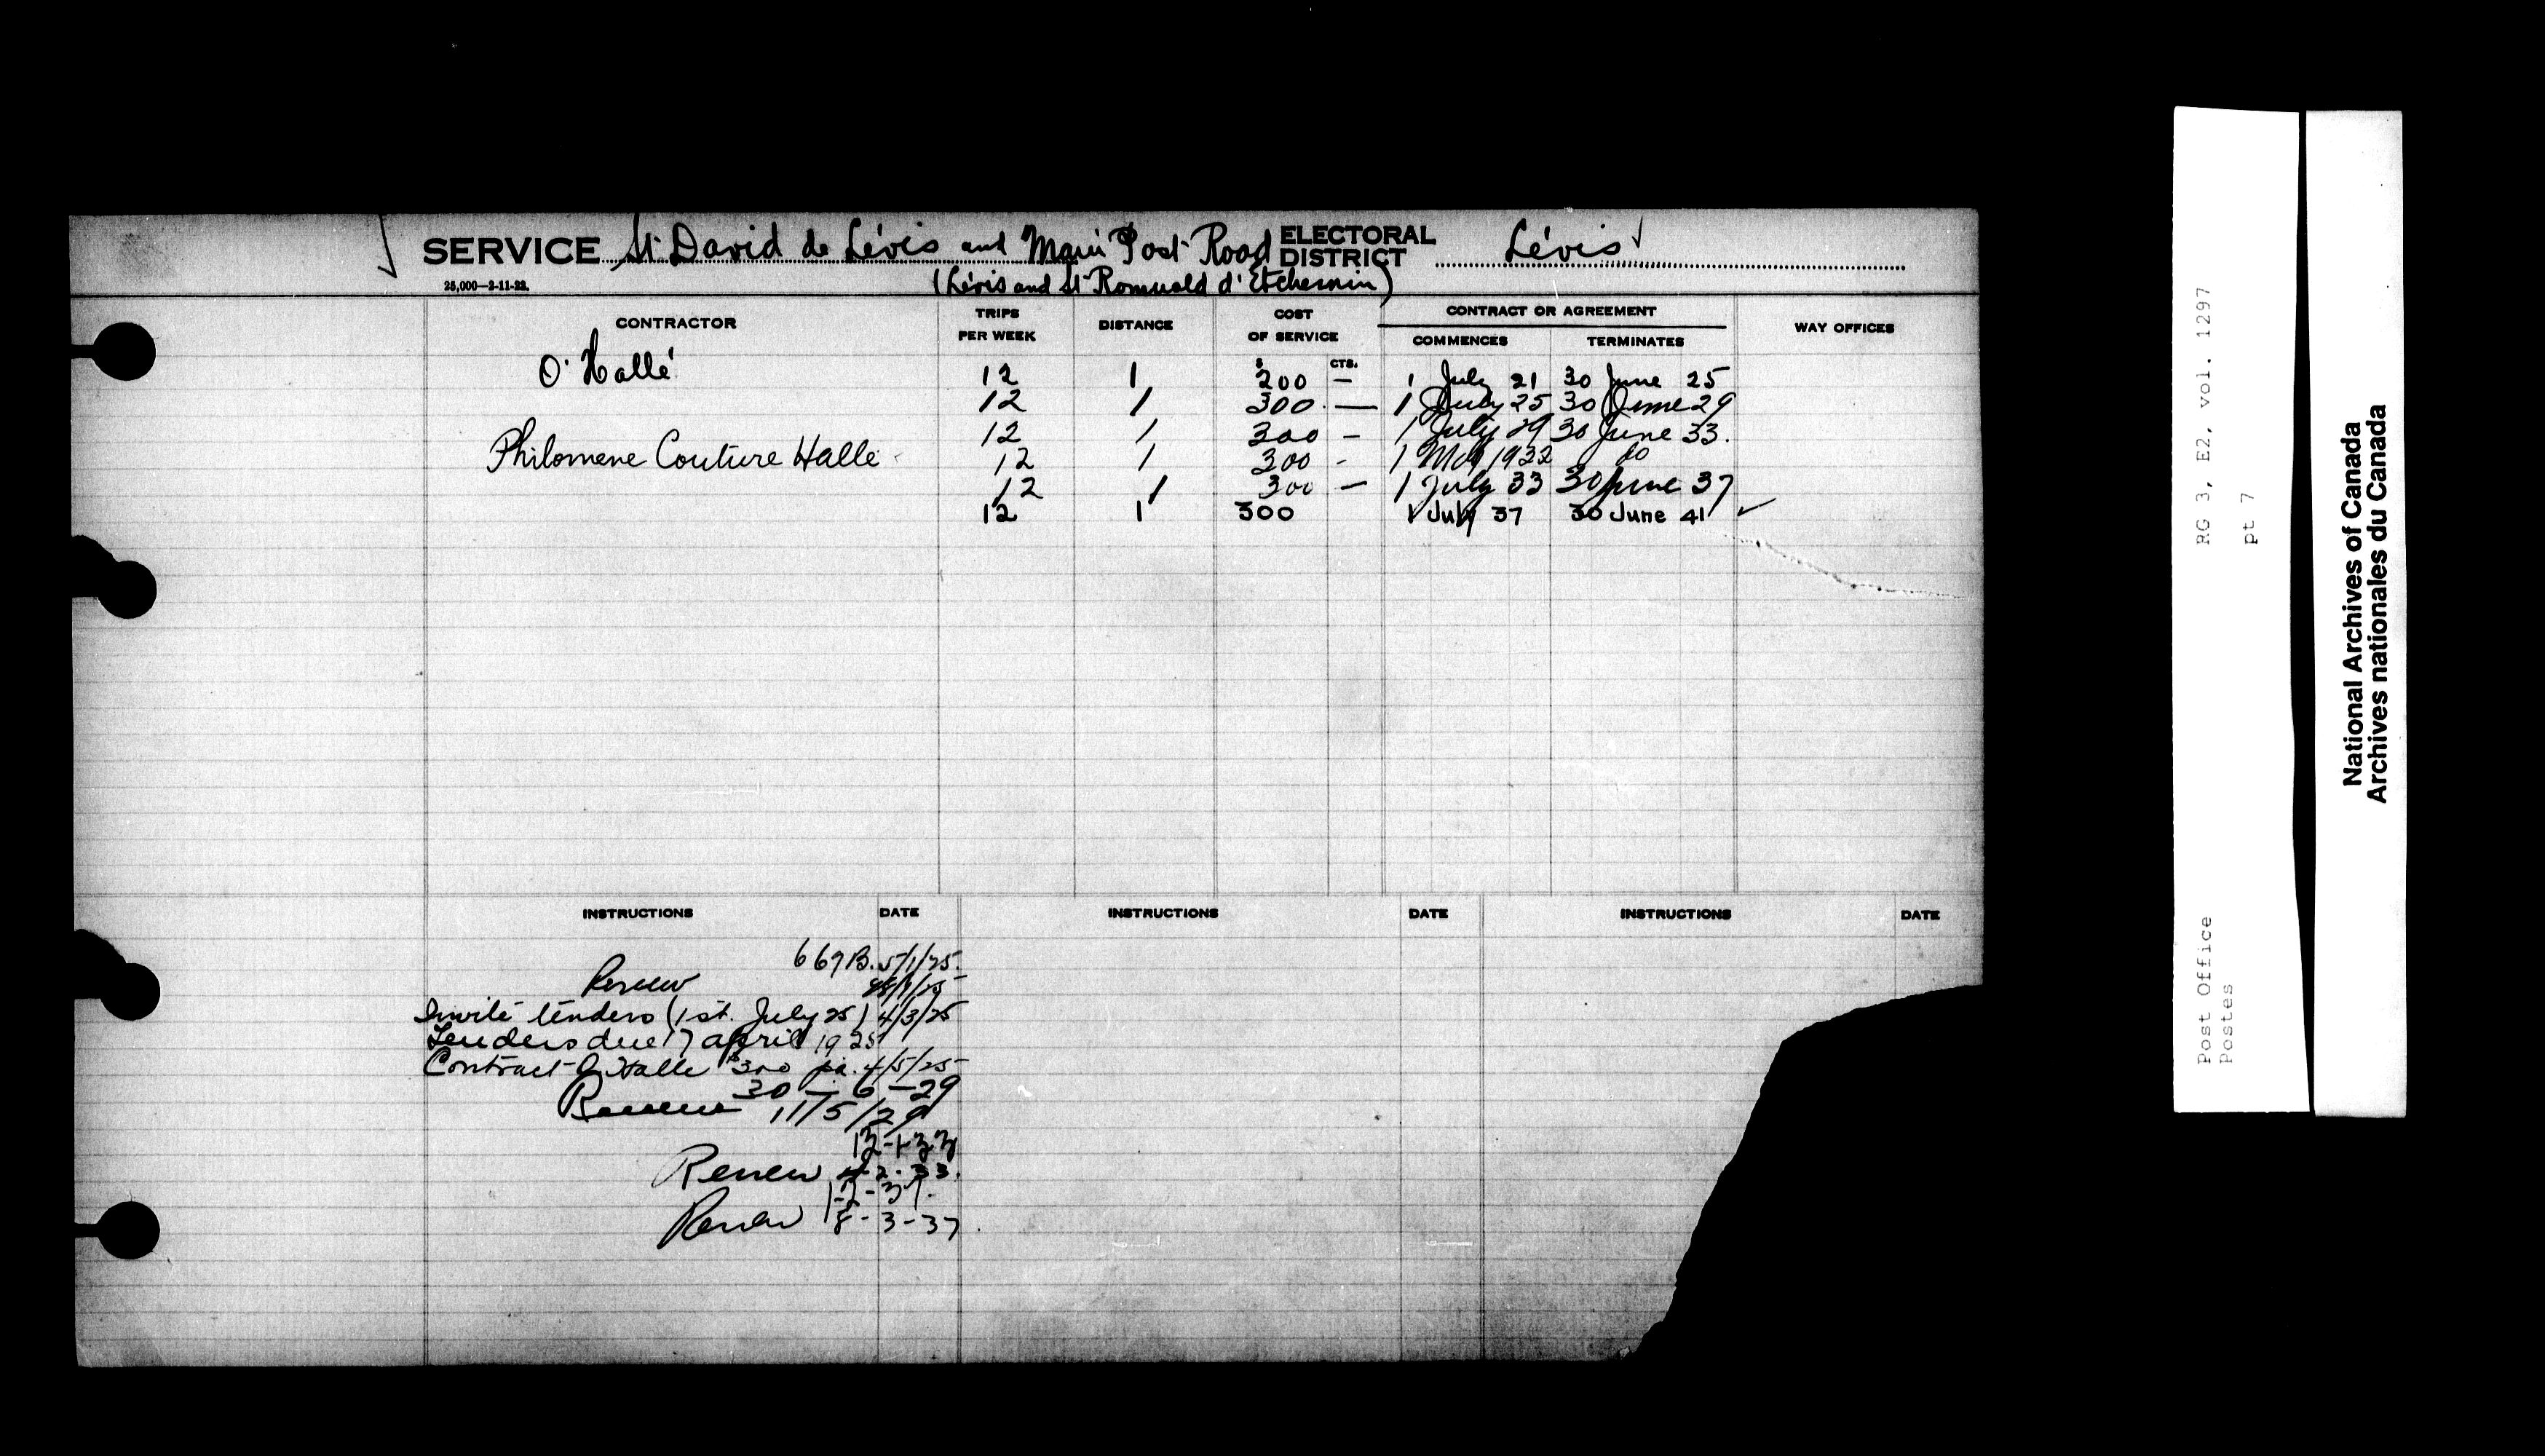 SERVICE St David de Lévis and Main Post Road ELECTORAL DISTRICT Lévis
(Lévis and St Romuald d'Etchemin)
25,000—2-11-22.
CONTRACTOR TRIPS PER WEEK DISTANCE COST OF SERVICE CONTRACT OR AGREEMENT COMMENCES TERMINATES WAY OFFICES
$ CTS.
O. Hallé 12 1 200 — 1 July 21 30 June 25
12 1 300 — 1 July 25 30 June 29
12 1 300 — 1 July 29 30 June 33.
Philomene Couture Halle 12 1 300 - 1 1932 do
12 1 300 — 1 July 33 30 June 37
12 1 300 1 July 37 30 June 41 ✓
INSTRUCTIONS DATE INSTRUCTIONS DATE INSTRUCTIONS DATE
669B. 5/1/25.
Renew
Invite tenders (1st. July 25) 4/3/25
Tenders due 17 april 1925
Contract O Halle $300 pa. 4/5/25
30 — 6 — 29
Renew 11/5/29
Renew 2.33.
Renew 8-3-37.
RG 3, E2, vol. 1297
pt 7
Post Office
Postes
National Archives of Canada
Archives nationales du Canada